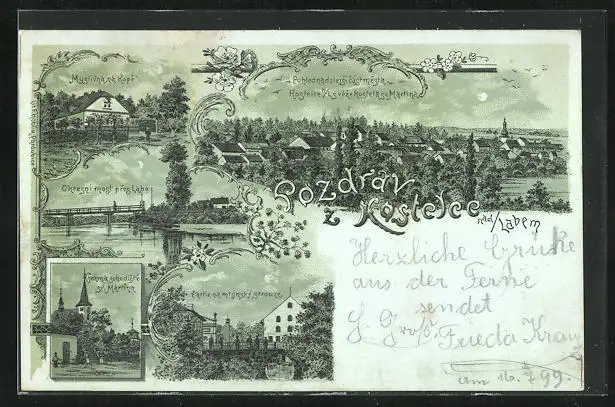 Myslivna na Kopě
Pohled na dolejší část města
Kostelce n/L s věže kostela sv. Martina
Okresní most přes Labe
Pozdrav
z Kostelce
nad/Labem
sv. Martina
Partie na mlýnské strouze
Herzliche Grüße
aus der Ferne
sendet
Frieda
am 16. 7 99.